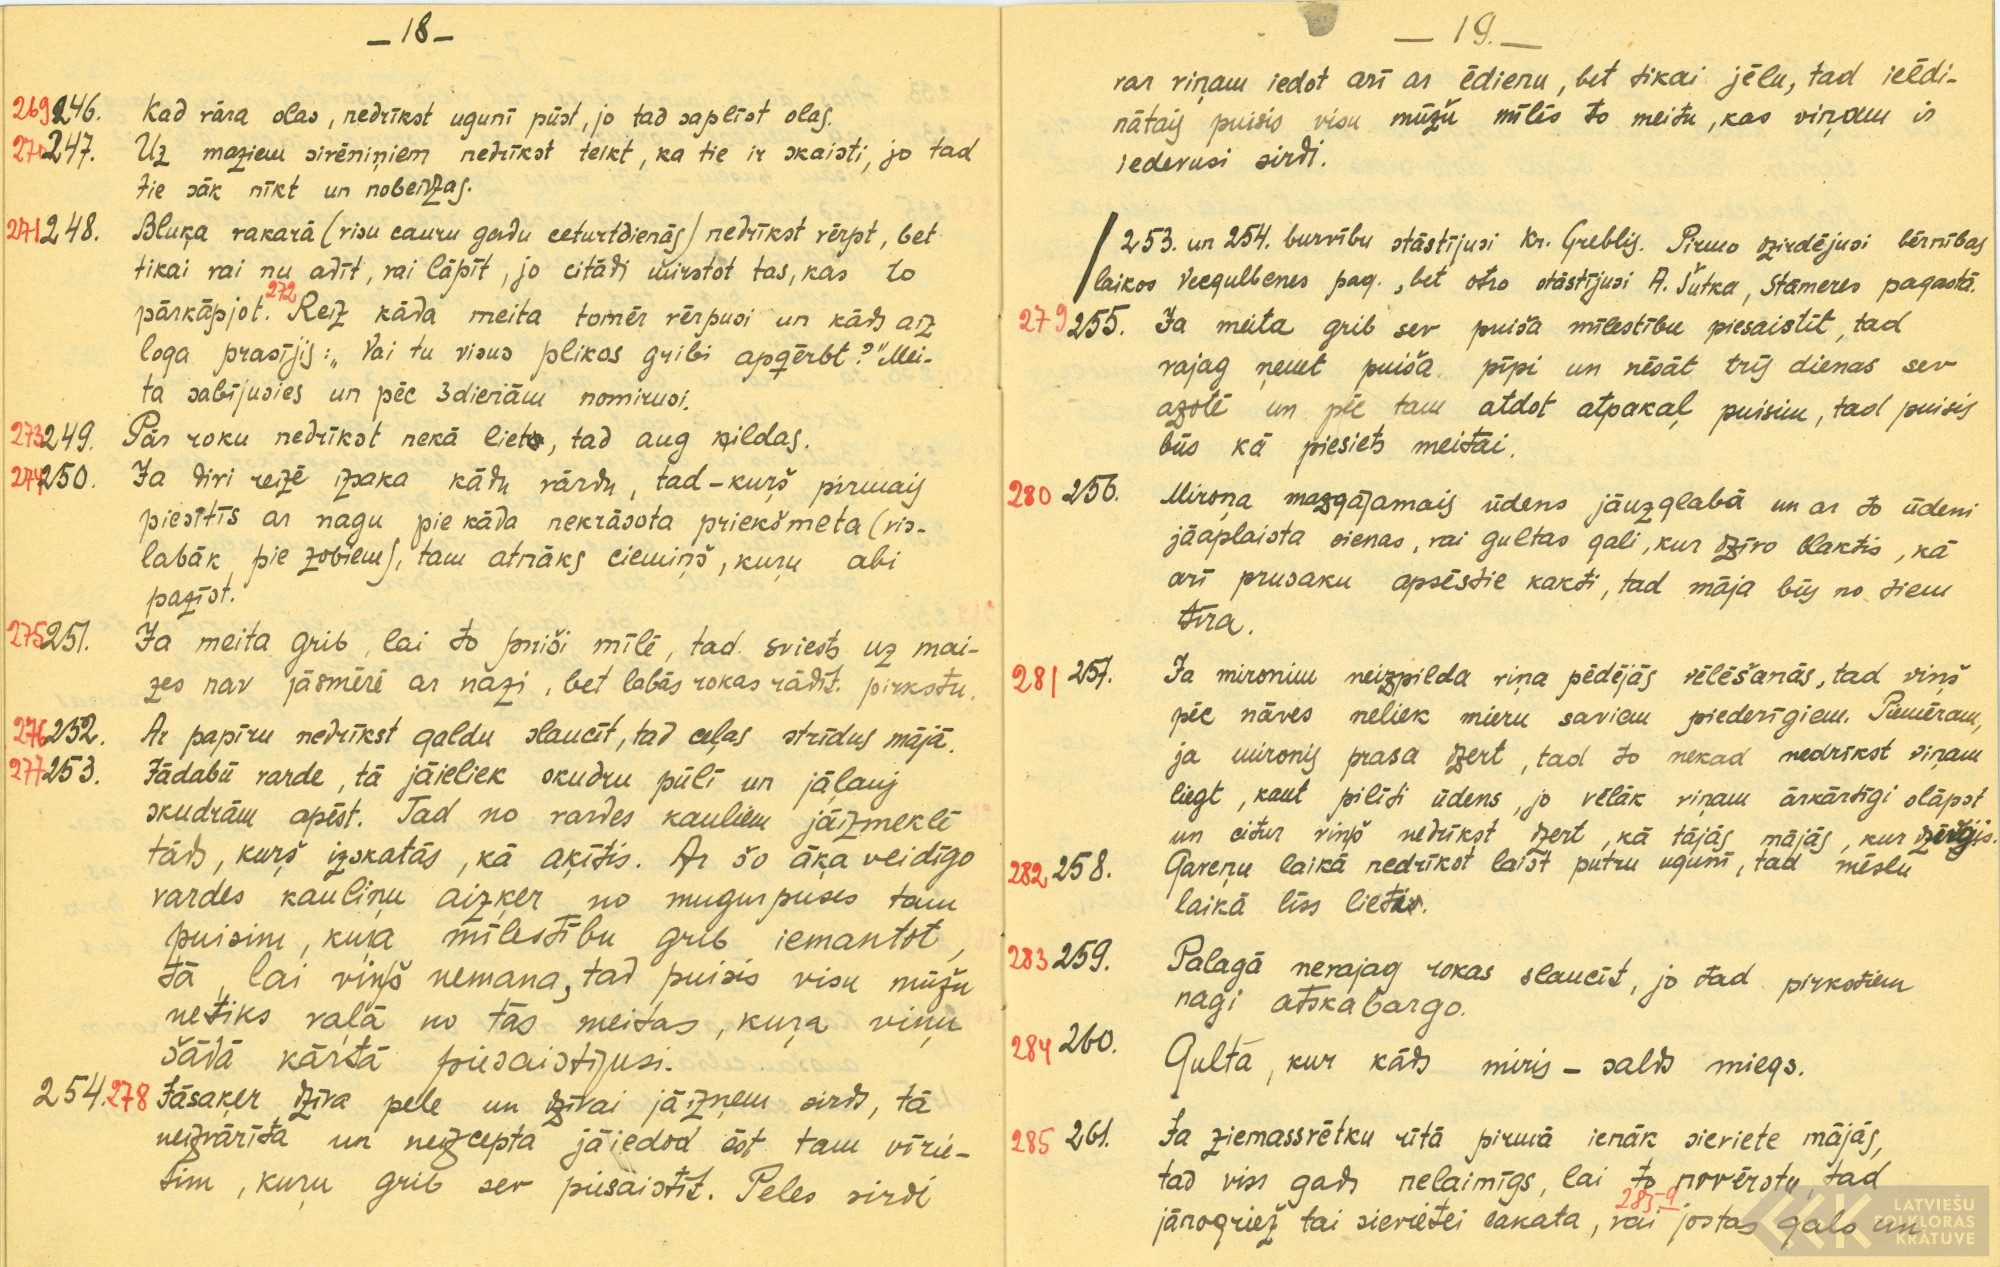 – 18 –
269 246. Kad vāra olas, nedrīkst ugunī pūst, jo tad saplīst olas.
270 247. Uz maziem sivēniņiem nedrīkst teikt, ka tie ir skaisti, jo tad
tie sāk nīkt un nobeidzas.
271 248. Bluķa vakarā (visu cauru gadu ceturtdienās) nedrīkst vērpt, bet
tikai vai nu adīt, vai lāpīt, jo citādi mirstot tas, kas to
pārkāpjot. 272 Reiz kāda meita tomēr vērpusi un kāds aiz
loga prasījis: „Vai tu visus plikos gribi apģērbt?" Mei-
ta sabījusies un pēc 3 dienām nomirusi.
273 249. Pār roku nedrīkst nekā liet, tad aug ķildas.
274 250. Ja divi reizē izsaka kādu vārdu, tad – kurš pirmais
piesitīs ar nagu pie kāda nekrāsota priekšmeta (vis-
labāk pie zobiem), tam atnāks ciemiņš, kuŗu abi
pazīst.
275 251. Ja meita grib, lai to puiši mīlē, tad sviests uz mai-
zes nav jāsmērē ar nazi, bet labās rokas rādīt. pirkstu.
276 252. Ar papīru nedrīkst galdu slaucīt, tad ceļas strīdus mājā.
277 253. Jādabū varde, tā jāieliek skudru pūlī un jāļauj
skudrām apēst. Tad no vardes kauliem jāizmeklē
tāds, kurš izskatās, kā āķītis. Ar šo āķa veidīgo
vardes kauliņu aizķer no mugurpuses tam
puisim, kuŗa mīlestību grib iemantot,
tā, lai viņš nemana, tad puisis visu mūžu
netiks vaļā no tās meitas, kuŗa viņu
šādā kārtā piesaistījusi.
254. 278 Jāsaķer dzīva pele un dzīvai jāizņem sirds, tā
neizvārīta un neizcepta jāiedod ēst tam vīrie-
tim, kuŗu grib sev piesaistīt. Peles sirdi
– 19. –
var viņam iedot arī ar ēdienu, bet tikai jēlu, tad ieēdi-
nātais puisis visu mūžu mīlēs to meitu, kas viņam ir
iedevusi sirdi.
253. un 254. burvību stāstījusi Kr. Greblis. Pirmo dzirdējusi bērnības
laikos Vecgulbenes pag., bet otro stāstījusi A. Šutka, Stāmeres pagastā.
279 255. Ja meita grib sev puiša mīlestību piesaistīt, tad
vajag ņemt puiša pīpi un nēsāt trīs dienas sev
azotē un pēc tam atdot atpakaļ puisim, tad puisis
būs kā piesiets meitai.
280 256. Miroņa mazgājamais ūdens jāuzglabā un ar to ūdeni
jāaplaista sienas, vai gultas gali, kur dzīvo blaktis, kā
arī prusaku apsēstie kakti, tad māja būs no tiem
tīra.
281 257. Ja mironim neizpilda viņa pēdējās vēlēšanās, tad viņš
pēc nāves neliek mieru saviem piederīgiem. Piemēram,
ja mironis prasa dzert, tad to nekad nedrīkst viņam
liegt, kaut pilīti ūdens, jo vēlāk viņam ārkārtīgi slāpst
un citur viņš nedrīkst dzert, kā tājās mājās, kur dzērijis.
282 258. Gaveņu laikā nedrīkst laist putru ugunī, tad mēslu
laikā līss lietus.
283 259. Palagā nevajag rokas slaucīt, jo tad pirkstiem
nagi atskabargo.
284 260. Gultā, kur kāds miris – salds miegs.
285 261. Ja ziemassvētku rītā pirmā ienāk sieviete mājās,
tad viss gads nelaimīgs, lai to novērstu, tad
jānogriež tai sievietei lakata, 285-a vai jostas gals un
LATVIEŠU
FOLKLORAS
KRĀTUVE